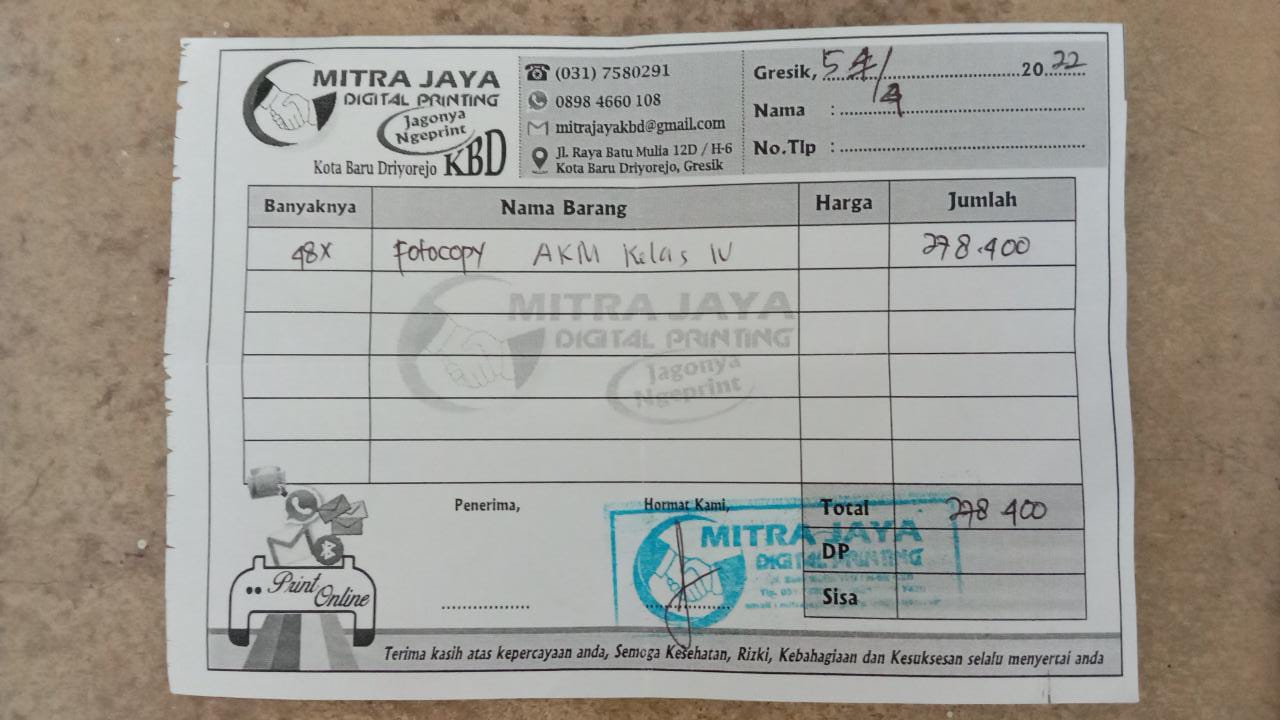 MITRA JAYA
DIGITAL PRINTING
Jagonya
Ngeprint
Kota Baru Driyorejo KBD
(031) 7580291
0898 4660 108
mitrajayakbd@gmail.com
Jl. Raya Batu Mulia 12D / H-6
Kota Baru Driyorejo, Gresik
Gresik, 2022
Nama :
No.Tlp :
Banyaknya Nama Barang Harga Jumlah
48x Fotocopy AKM Kelas IV 278.400
MITRA JAYA
DIGITAL PRINTING
Jagonya
Ngeprint
Penerima, Hormat Kami, Total 278 400
MITRA JAYA
DIGITAL PRINTING
DP
Sisa
Print Online
Terima kasih atas kepercayaan anda, Semoga Kesehatan, Rizki, Kebahagiaan dan Kesuksesan selalu menyertai anda